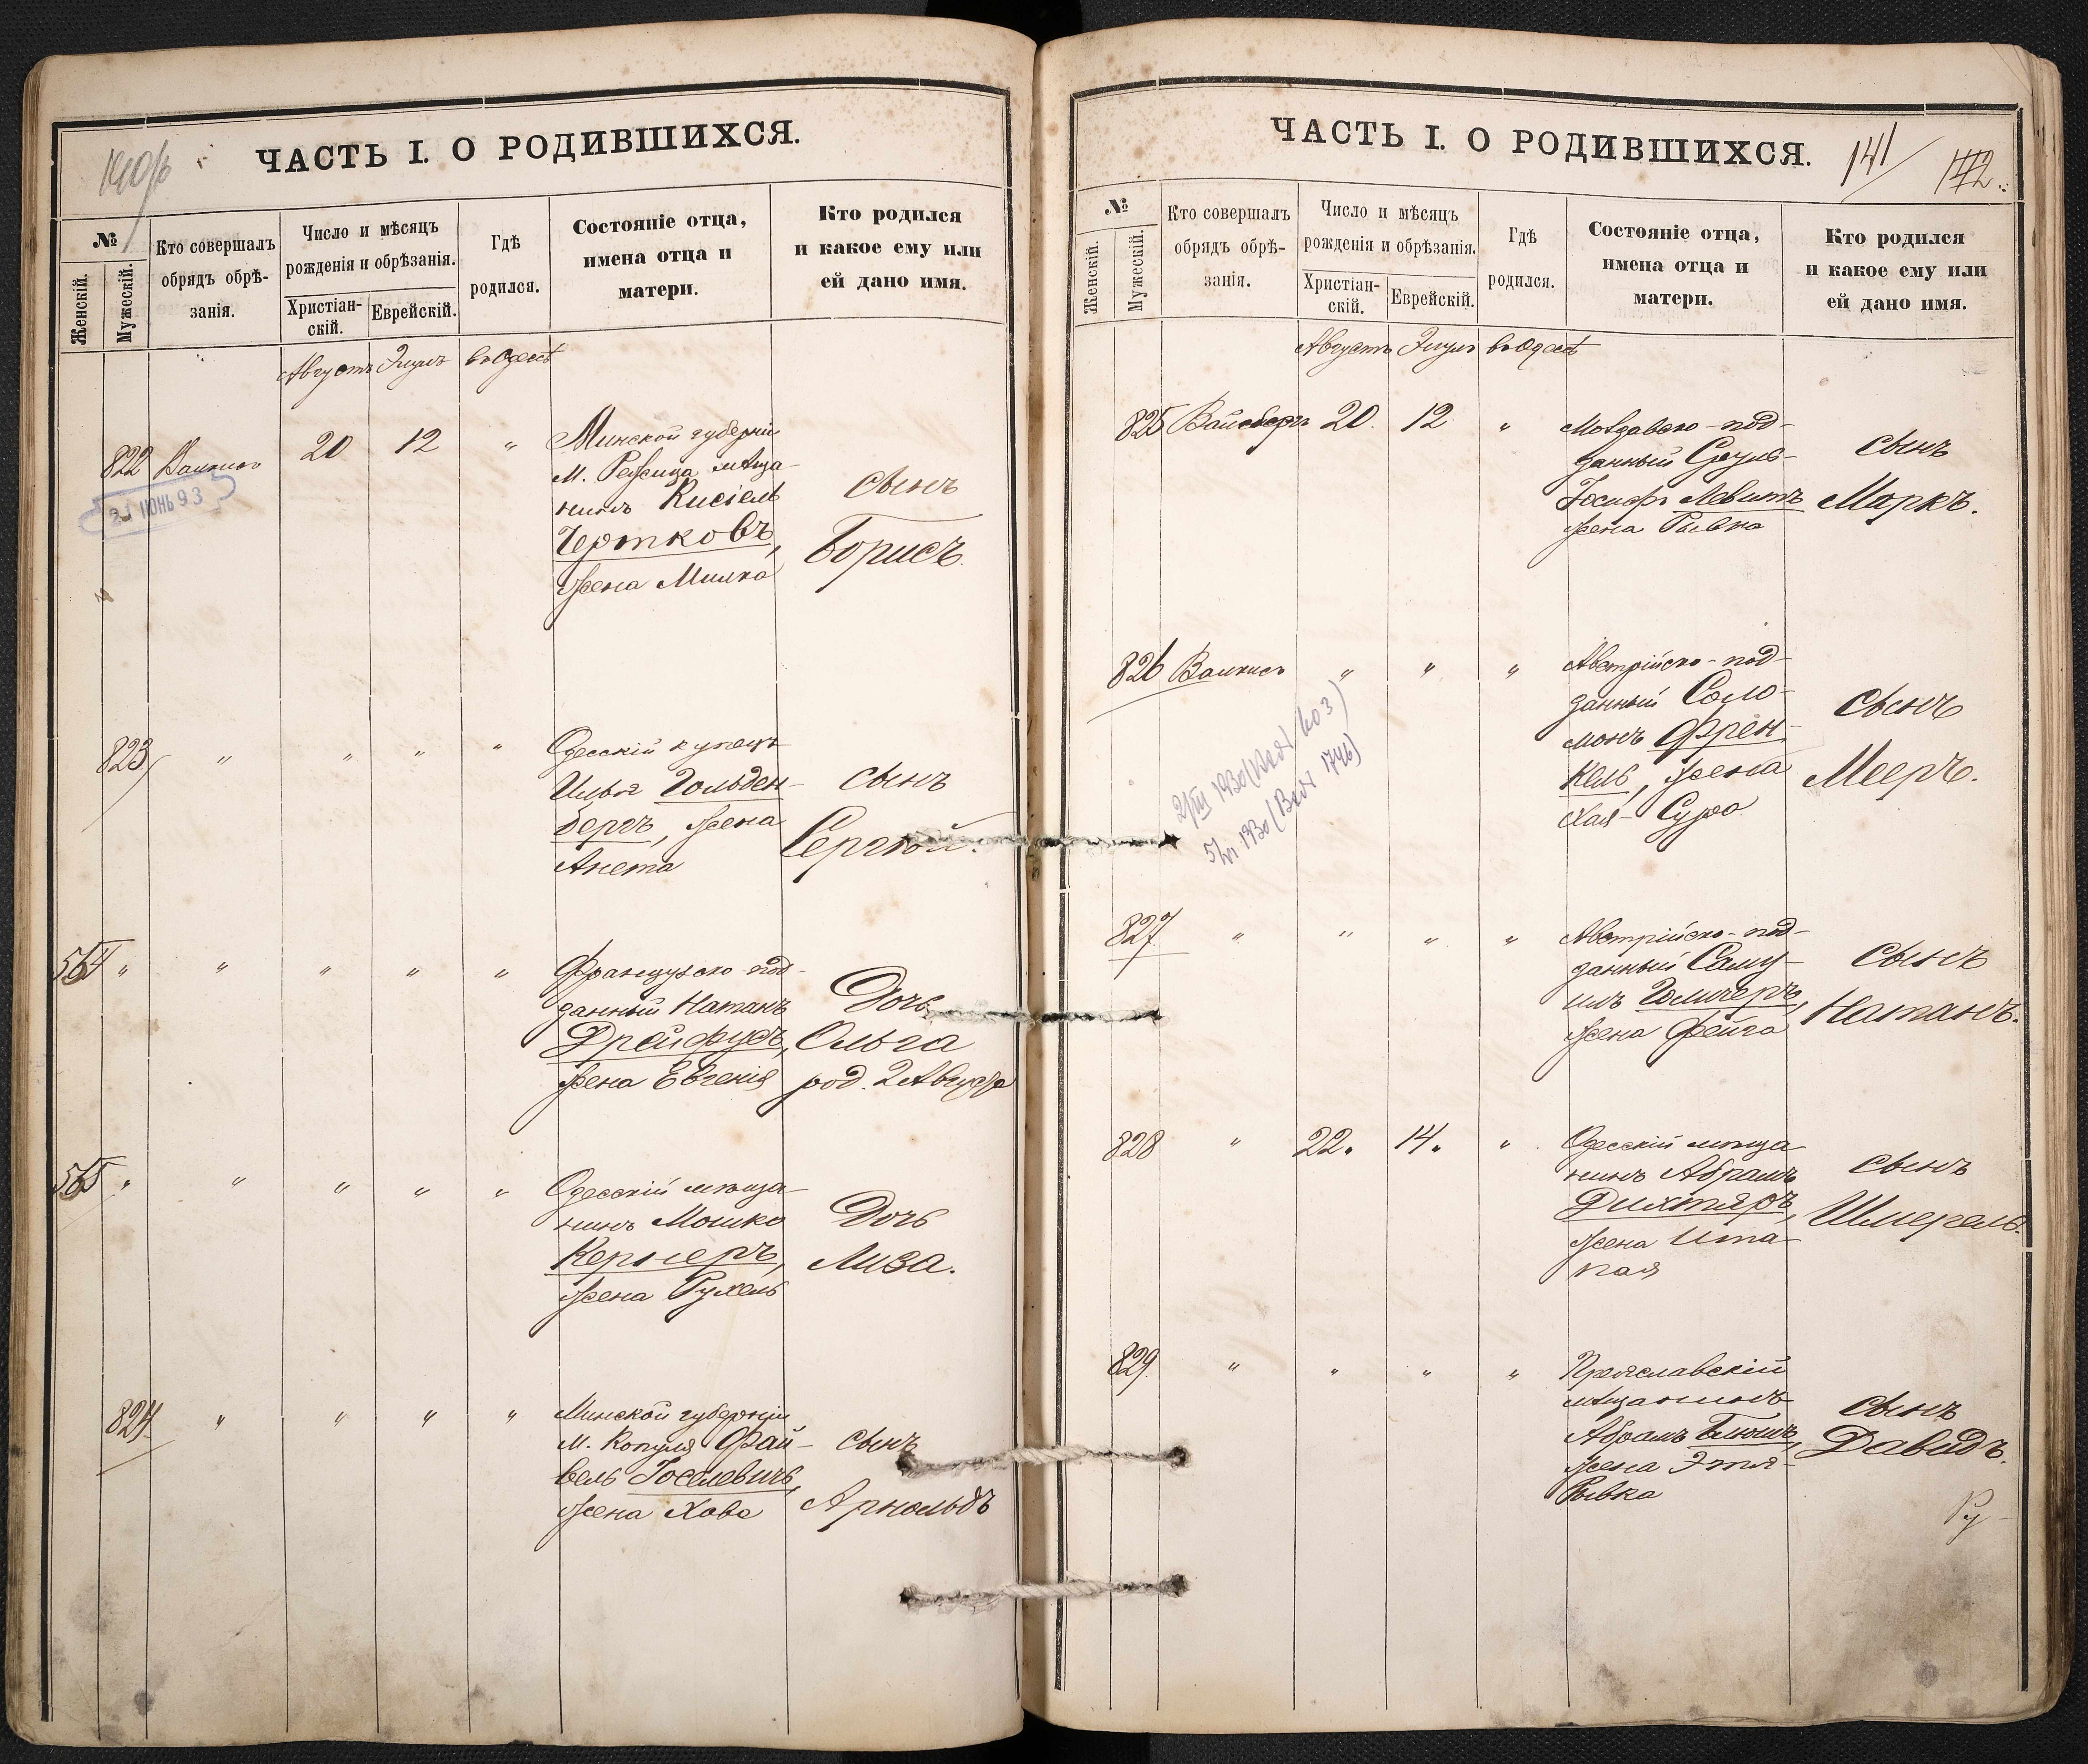 ЧАСТЬ I. О РОДИВШИХСЯ.
№
Женскій.
Мужескій.
Кто совершалъ
обрядъ обрѣ-
занія.
Число и мѣсяцъ
рожденія и обрѣзанія.
Христіан-
скій.
Еврейскій.
Гдѣ
родился.
Состояніе отца,
имена отца и
матери.
Кто родился
и какое ему или
ей дано имя.
Августъ Элулъ въ Одессѣ
822 20 12 "
21 ІЮНЬ 93
Минской губерніи
М. мѣща-
нинъ Кисіель
Чертковъ,
жена Милка
сынъ
Борисъ.
823 " " " "
Одесскій купецъ
Илья Гольден-
бергъ, жена
Анета
сынъ
Сергѣй.
564 " " " " "
Французско-под-
данный Натанъ
Дрейфусъ,
жена Евгенія
Дочь
Ольга
род. 2 Августа
565 " " " " "
Одесскій мѣща-
нинъ Мошко
Кернеръ,
жена Рухель
Дочь
Лиза.
824 " " " "
Минской губерніи
М. Копуля Фай-
вель Іоселевичъ,
жена Хава
сынъ
Арнольдъ
ЧАСТЬ I. О РОДИВШИХСЯ.
141
142
№
Женскій.
Мужескій.
Кто совершалъ
обрядъ обрѣ-
занія.
Число и мѣсяцъ
рожденія и обрѣзанія.
Христіан-
скій.
Еврейскій.
Гдѣ
родился.
Состояніе отца,
имена отца и
матери.
Кто родился
и какое ему или
ей дано имя.
Августъ Элулъ въ Одессѣ
825 Вайсбергъ 20. 12 "
Молдавско-под-
данный Сруль-
Іосифъ Левитъ
жена Рывка
сынъ
Маркъ.
826 " " "
Австрійско-под-
данный Соло-
монъ Френ-
кель, жена
Хая-Сура
сынъ
Мееръ.
827 " " " "
Австрійско-под-
данный Саму-
илъ
жена Фейга
сынъ
Натанъ.
828 " 22. 14. "
Одесскій мѣща
нинъ Абрамъ
Дихтяръ,
жена Ита-
сынъ
Шмерель.
829 " " " "
Преяславскій
мѣщанинъ
Абрамъ
жена Этля-
Рывка
сынъ
Давидъ.